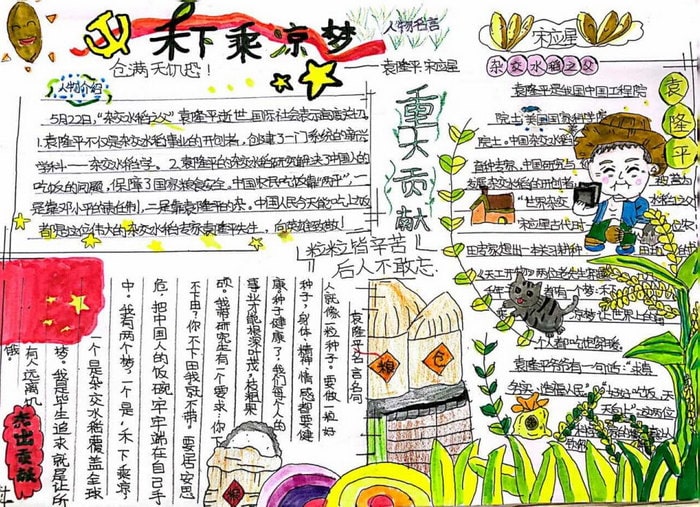 禾下乘凉梦
仓满无饥恐!
人物名言
袁隆平 宋应星
人物介绍
5月22日,"杂交水稻之父"袁隆平逝世,国际社会表示高度关切。
1.袁隆平不仅是杂交水稻事业的开创者,创建了一门系统的新兴
学科——杂交水稻学。2.袁隆平的杂交水稻研究解决了中国人的
吃饭的问题,保障了国家粮食安全,中国农民吃饭靠"两平"
是靠邓小平的责任制,二是靠袁隆平的杂。中国人民今天能吃上饱饭
都要感这位伟大的杂交水稻专家袁隆平先生,向英雄致敬!
重大贡献
粒粒皆辛苦
后人不敢忘
袁隆平名言名句
人就像一粒种子。要做一粒好
种子,身体、精神、情感都要健
康。种子健康了,我们每个人的
事业才能根深叶茂,枝粗果
硕。我带研究生有一个要求,你下
不下田?你不下田我就不带。要居安思
危,把中国人的饭碗牢牢端在自己手
中。我有两个梦,一个是,禾下乘凉
一个是杂交水稻覆盖全球
梦。我毕生追求就是让所
有人远离饥
饿。
杰出贡献
粮
仓
粮
宋应星
杂交水稻之父
袁隆平
袁隆平是我国中国工程院
院士,美国国家科学院
院士。中国杂交水稻
育种专家,中国研究与
发展杂交水稻的开创者
"世界杂交
水稻之父
宋应星古代时
《天工开物》两位老先生
千年
都有一个梦:禾下
乘凉梦,让世界上的每
个人都吃饱穿暖。
袁隆平爷爷有一句话: